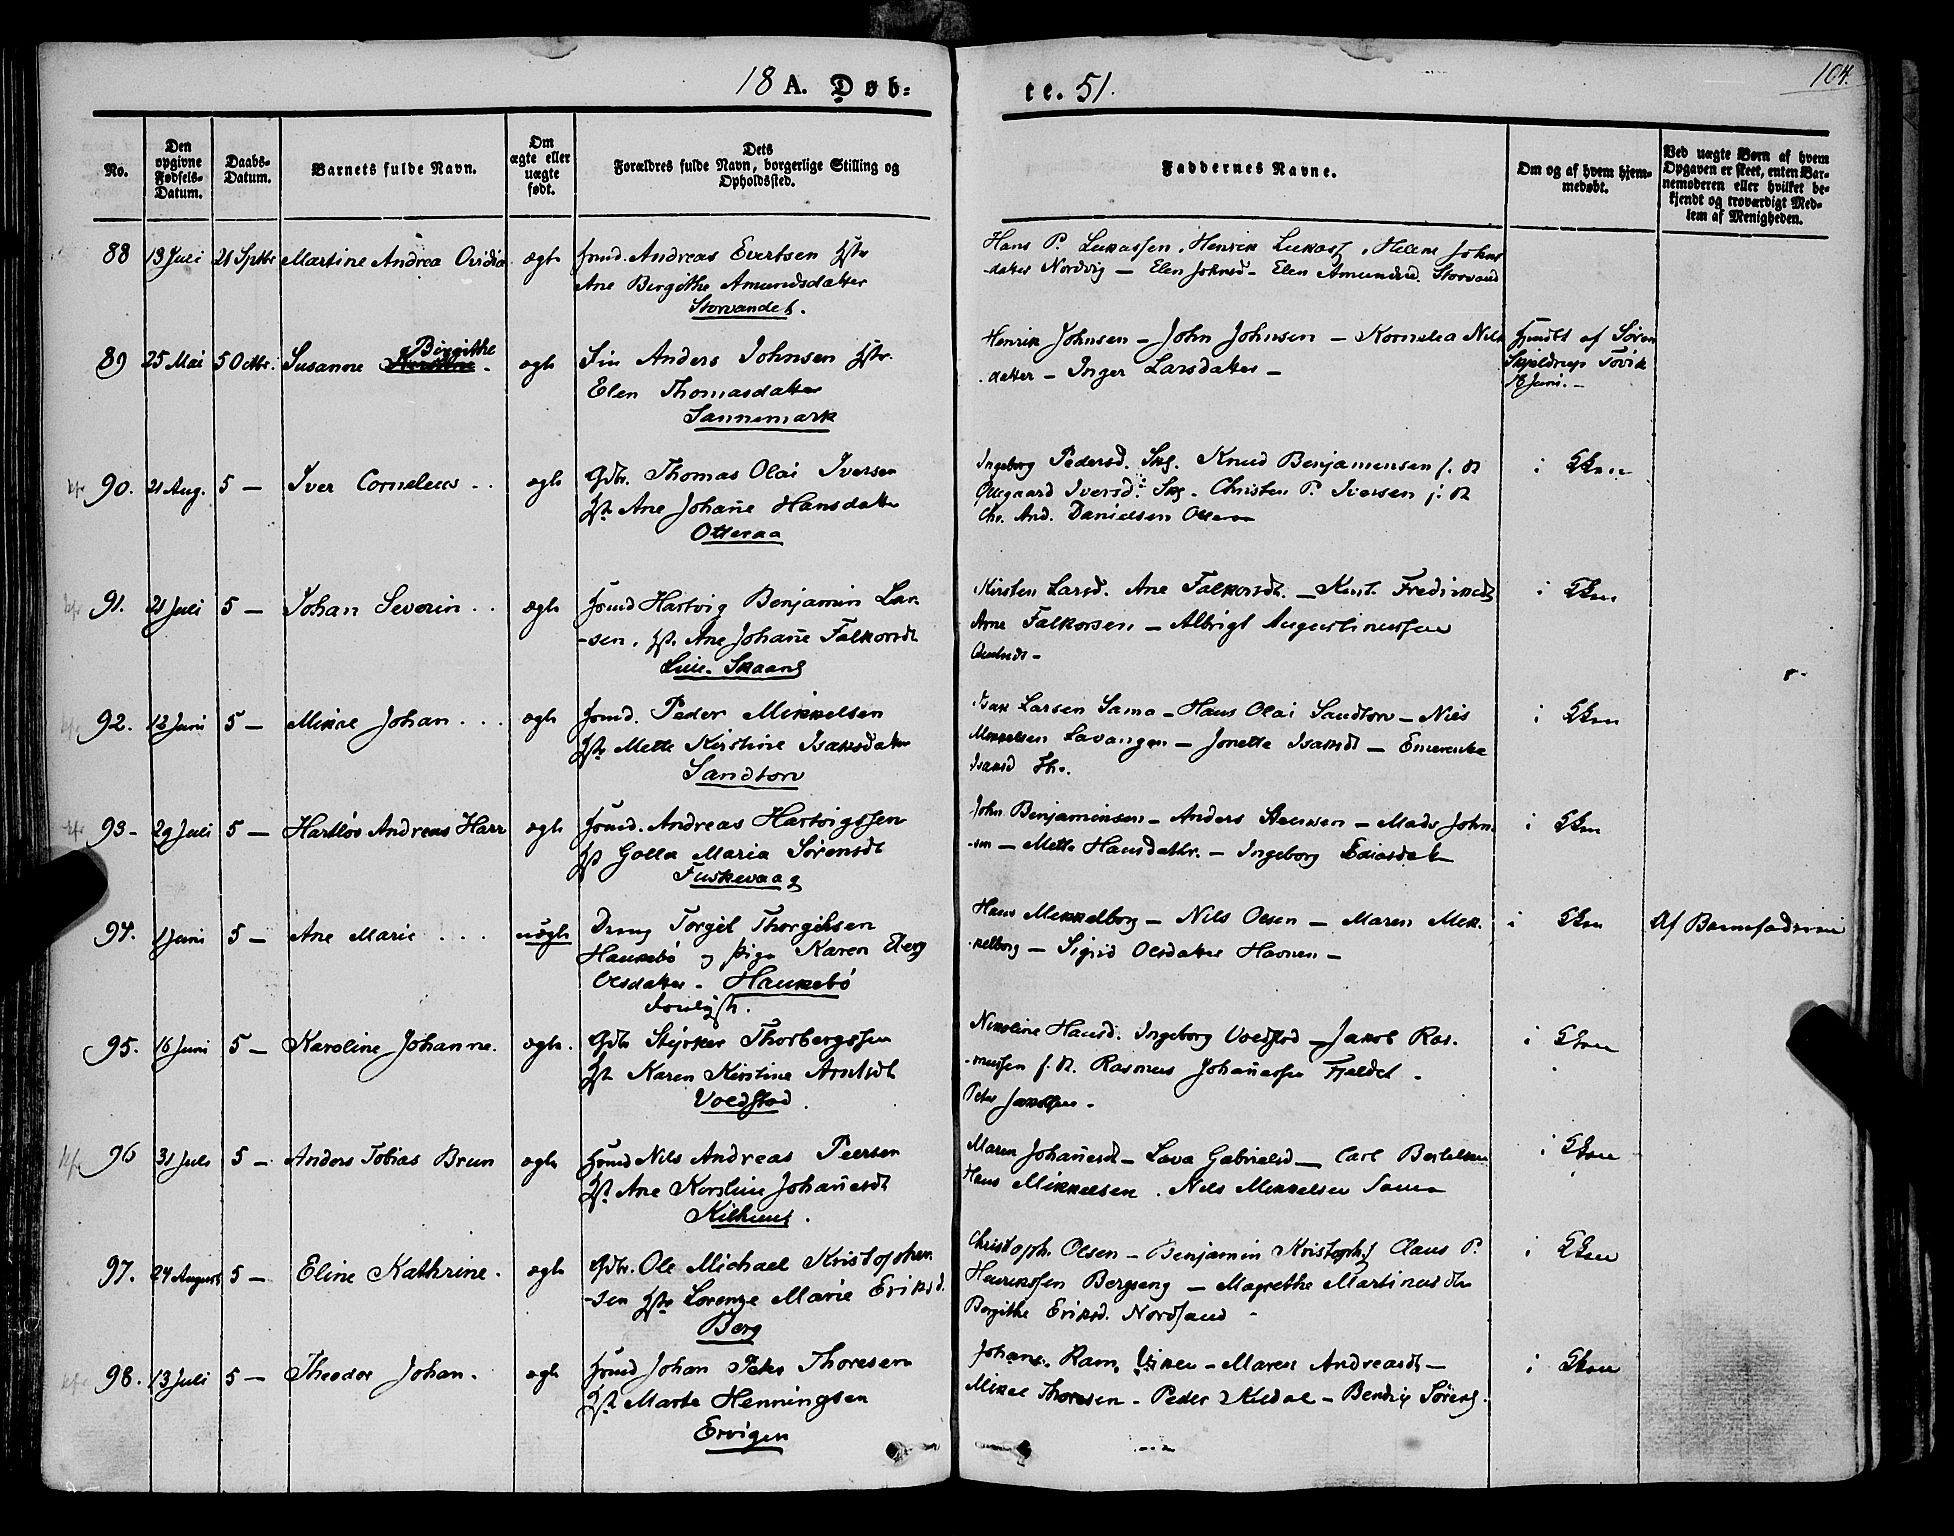 18 A. Døb=
te. 51.
104.
No.
Den opgivne Fødsels-Datum.
Daabs-Datum.
Barnets fulde Navn.
Om ægte eller uægte født.
Dets Forældres fulde Navn, borgerlige Stilling og Opholdssted.
Faddernes Navne.
Om og af hvem hjem-medøbt.
Ved uægte Børn af hvem Opgaven er skeet, enten Bar-nemoderen eller hvilket be-kjendt og troværdigt Med-lem af Menigheden.
88 13 Juli 21 Sptbr Martine Andrea Ovidia ægte Husmd. Andreas Evertsen Hstr
Ane Birgithe Amundsdatter
Storvandet.
Hans P. Lukassen, Henrik Lukass, Helene Johns
datter Nordvig — Elen Johnsd — Elen Amundsd. Storvand
89 25 Mai 5 Octbr. Susanne Birgithe ægte Fin Anders Johnsen Hstr.
Elen Thomasdatter
Sannemark
Henrik Johnsen — John Johnsen — Kornelia Nils
datter — Inger Larsdatter —
Hjmdbt af Søren
Skjeldrup Tovik
18 Juni. —
90. 21 Aug. 5 — Iver Cornelius . . ægte Gdbr. Thomas Olai Iversen
Hstr Ane Johane Hansdatter
Otteraa
Ingeborg Pedersd. Skg. Knud Benjaminsen
Iversd. Skg. Christen P. Iversen
Chr. And. Danielsen
i Kken
91. 21 Juli 5 — Johan Severin . . ægte Husmd Hartvig Benjamin Lar-
-sen. Hstr. Ane Johane Falkorsdt
Skaans
Kirsten Larsd. Ane Falkorsdt. — Fredriksdt
Arne Falkorsen — Albrigt Augustinussen
i Kken
92. 12 Juni 5 — Mikal Johan . . . ægte Husmd. Peder Mikkelsen
Hstr Mette Kirstine Isaksdatter
Sandtorv
Isak Larsen Sama — Hans Olai Sandtorv — Niels
Mikkelsen Lavangen — Jonette Isaksdt — Emerentse
Isaksd
i Kken
93 — 29 Juli 5 — Hartløv Andreas Harr ægte Husmd. Andreas Hartvigssen
Hstr Golla Maria Sørensdt
Fuskevaag
John Benjaminsen — Anders — Mads John-
-sen — Mette Hansdattr. — Ingeborg
i Kken
94. 1 Juni 5 — Ane Marie . . . . uægte Dreng Torgel Thorgilsen
Haukebø og Pige Karen Elerg
Olsdatter. Haukebø
Hans Mikkelborg — Nils Olsen — Maren Mik-
-kelborg — Sigrid Olsdatter Havnen —
i Kken
Af Barnefaderen
95. 16 Juni 5 — Karoline Johanne. ægte. Gdbr Styrker Thorbergssen
Hstr Karen Kirstine Arntsdt
Voldstad.
Nikoline Hansd. Ingeborg Voldstad — Jakob Ras-
-mussen Rasmus Johanessen Fjeldet.
Peter Jakobsen.
i Kken
96 31 Juli 5 — Anders Tobias Brun ægte Husmd Nils Andreas Peersen
Hstr Ane Kirstine Johanesdt
Kilhus.
Maren Johanesdt — Lava Gabrielsd — Carl Bertelsen
Hans Mikkelsen. Nils Mikkelsen Sama
i Kken
97. 24 August 5 — Eline Kathrine. ægte Gdbr. Ole Michael Kristophers
-sen Hstr Lorenze Marie Eriksd.
Berg
Christoph. Olsen — Benjamin Kristophs Claus P.
Henrikssen Bergseng — Magrethe Martinusdtr
Bergithe Eriksd. Nordsand
i Kken
98. 13 Juli 5 — Theodor Johan. ægte Husmd Johan Peter Thoresen
Hstr Marte Henningsen
Ervigen
Johan. Ram, Viken — Maren Andreasdt —
Mikal Thoresen — Peder Kildal — Bendix Sørens.
i Kken